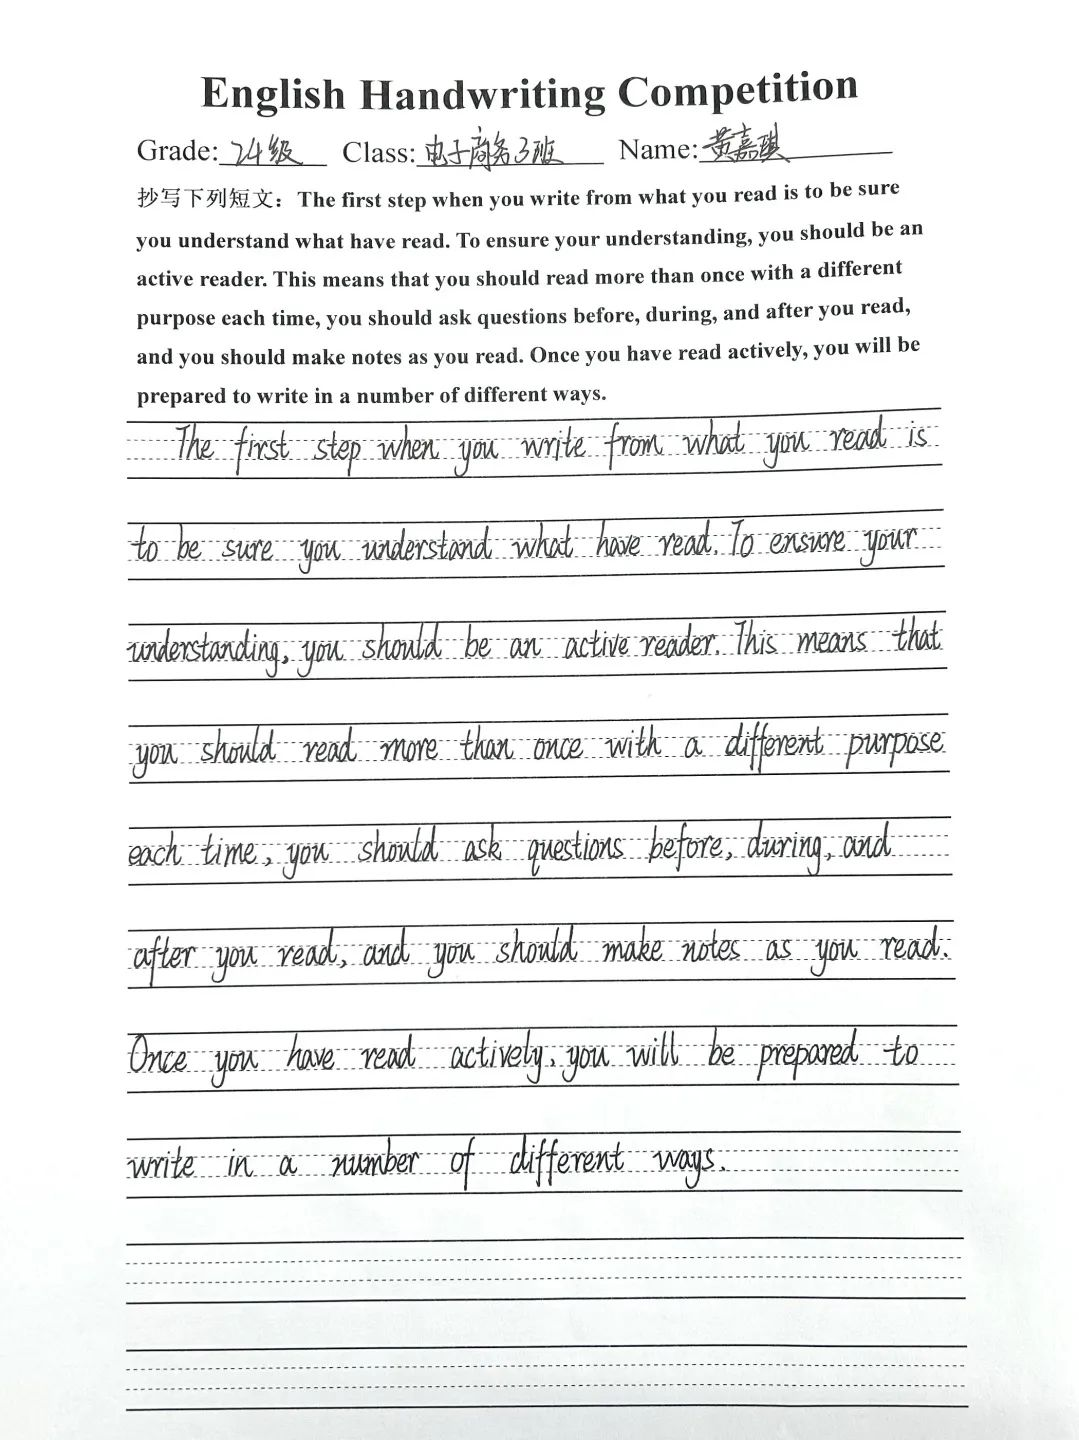 English Handwriting Competition
Grade: 24级 Class: 电子商务3班 Name: 黄嘉琪
抄写下列短文：The first step when you write from what you read is to be sure
you understand what have read. To ensure your understanding, you should be an
active reader. This means that you should read more than once with a different
purpose each time, you should ask questions before, during, and after you read,
and you should make notes as you read. Once you have read actively, you will be
prepared to write in a number of different ways.
The first step when you write from what you read is
to be sure you understand what have read. To ensure your
understanding, you should be an active reader. This means that
you should read more than once with a different purpose
each time, you should ask questions before, during, and
after you read, and you should make notes as you read.
Once you have read actively, you will be prepared to
write in a number of different ways.